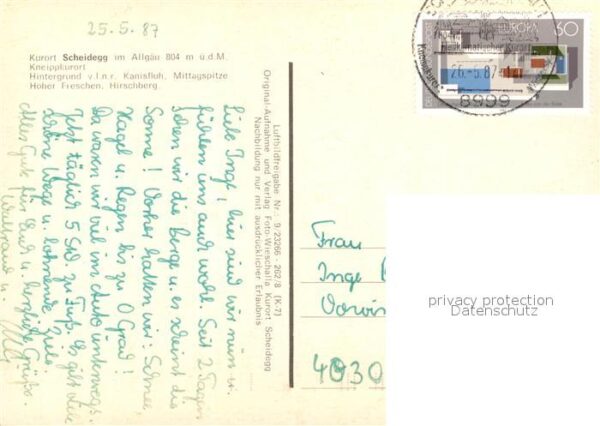 25.5.87
Kurort Scheidegg im Allgäu 804 m ü.d.M.
Kneippkurort
Hintergrund v.l.n.r. Kanisfluh, Mittagspitze
Hoher Freschen, Hirschberg
Liebe Inge! Hier sind wir nun u.
fühlen uns auch wohl. Seit 2 Tagen
sehen wir die Berge u. es scheint die
Sonne! Vorher hatten wir: Schnee,
Hagel u. Regen bis zu 0 Grad!
Da waren wir viel im Auto unterwegs.
Jetzt täglich 5 Std. zu Fuß. Es gibt
schöne Wege u. lohnende Ziele.
Alles Gute für Euch u. herzliche Grüße.
Waltraud u.
Luftbildfreigabe Nr. 9/23266 - 262/8 (K-7)
Original-Aufnahme und Verlag Foto-Wieschalla Kurort Scheidegg
Nachbildung nur mit ausdrücklicher Erlaubnis
EUROPA 60
Heilklimatischer Kurort
26.-5.87
8999
Frau
Inge
4030
privacy protection
Datenschutz